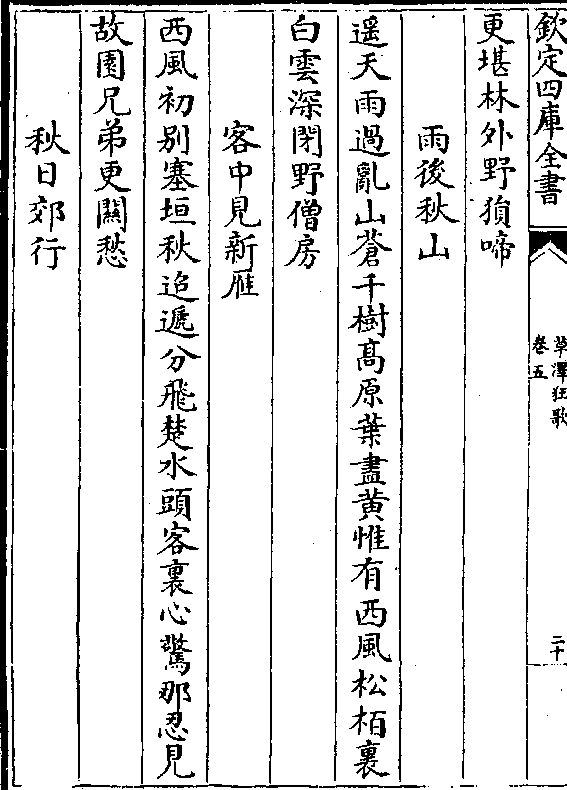 欽定四庫全書
草澤狂歌
卷五
二十
更堪林外野猿啼
雨後秋山
遥天雨過亂山蒼千樹髙原葉盡黄惟有西風松栢裏
白雲深閉野僧房
客中見新雁
西風初别塞垣秋迢遞分飛楚水頭客裏心驚那忍見
故園兄弟更闗愁
秋日郊行